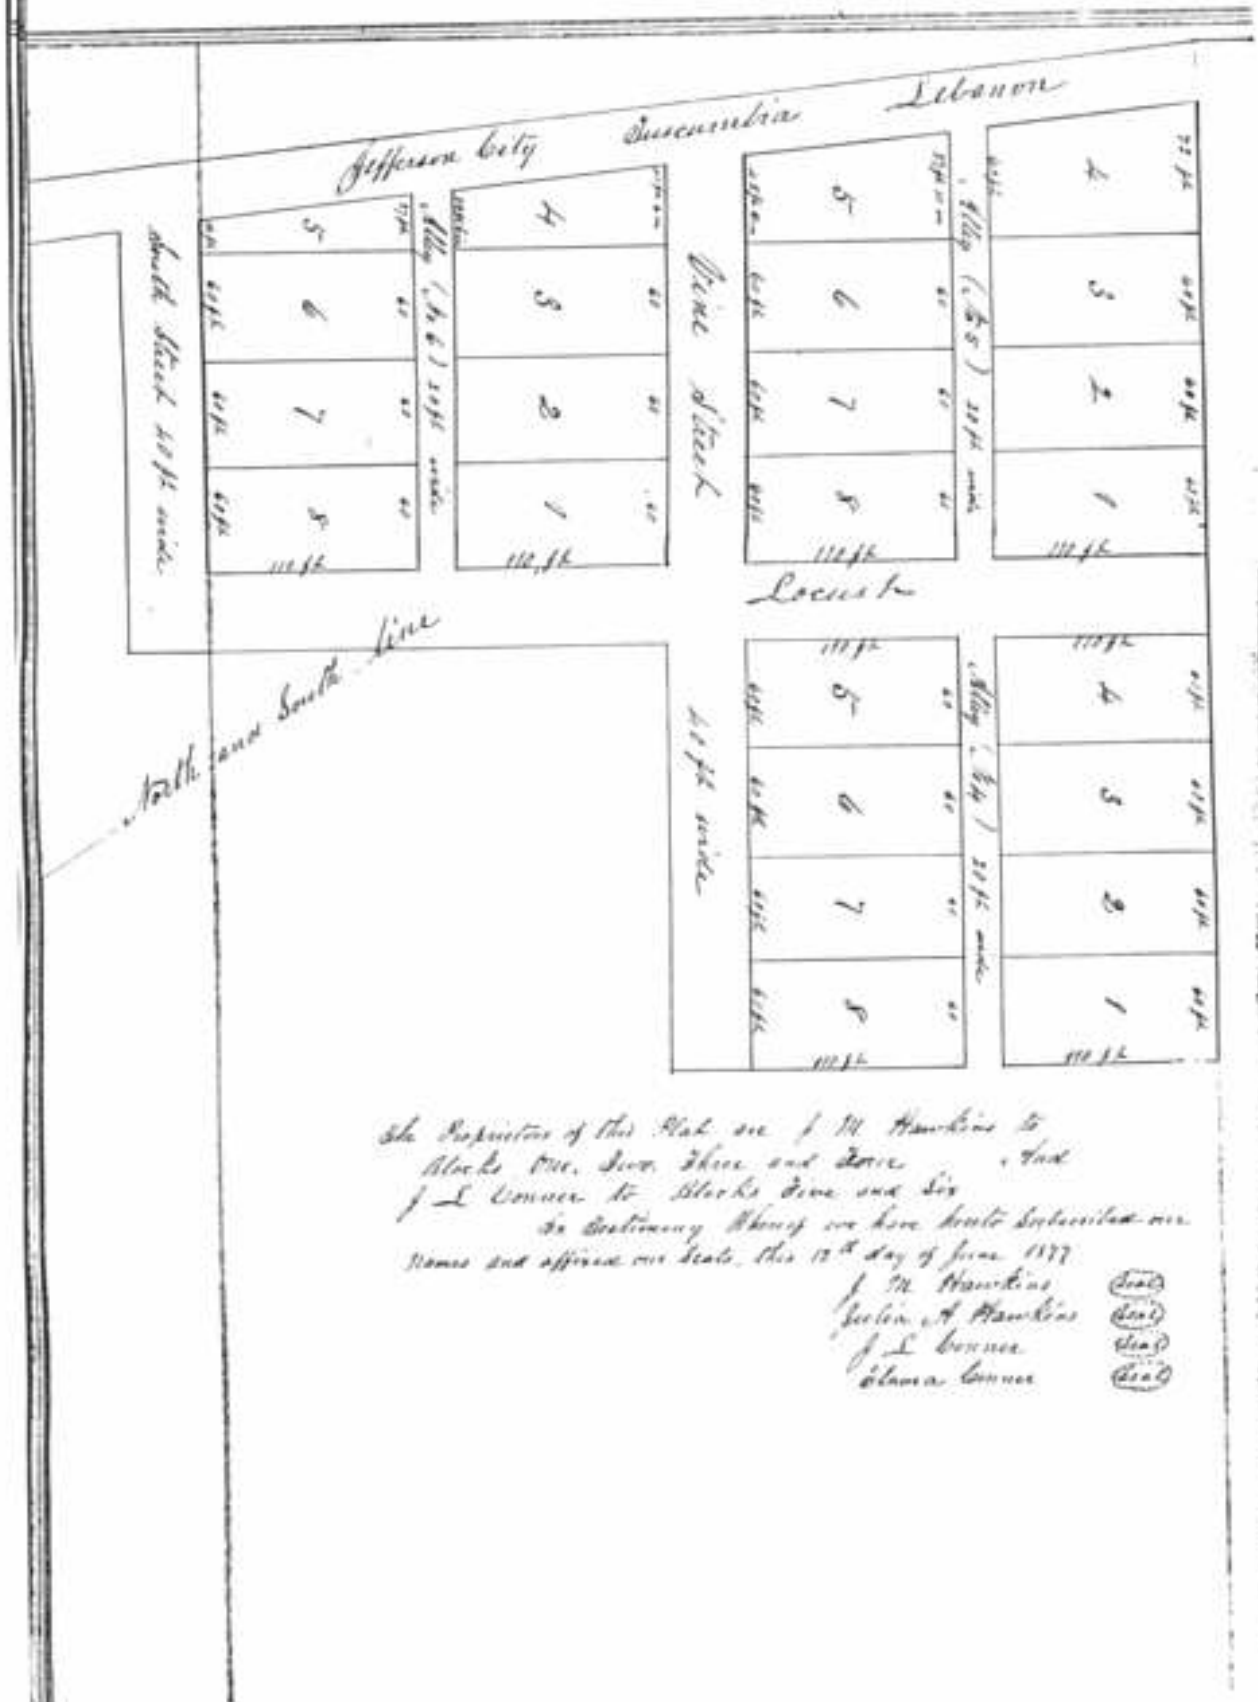 Jefferson City Tuscumbia Lebanon
South Street 40 ft wide
5
37 ft
6
60 ft
60
7
60 ft
60
8
60 ft
60
110 ft
Alley (No 6) 20 ft wide
4
3
60
2
60
1
60
110 ft
Vine Street
40 ft wide
5
6
60 ft
60
7
60 ft
60
8
60 ft
60
110 ft
Alley (No 5) 20 ft wide
4
77 ft
3
60 ft
2
60 ft
1
60 ft
110 ft
Locust
North and South line
110 ft
5
60 ft
60
6
60 ft
60
7
60 ft
60
8
60 ft
60
110 ft
Alley (No 4) 20 ft wide
110 ft
4
60 ft
3
60 ft
2
60 ft
1
60 ft
110 ft
The Proprietors of this Plat are J M Hawkins to
Blocks One, Two, Three and Four, And
J L Conner to Blocks Five and Six
In Testimony Whereof we have hereto Subscribed our
Names and affixed our Seals, this 12th day of June 1877
J M Hawkins (Seal)
Julia A Hawkins (Seal)
J L Conner (Seal)
Conner (Seal)